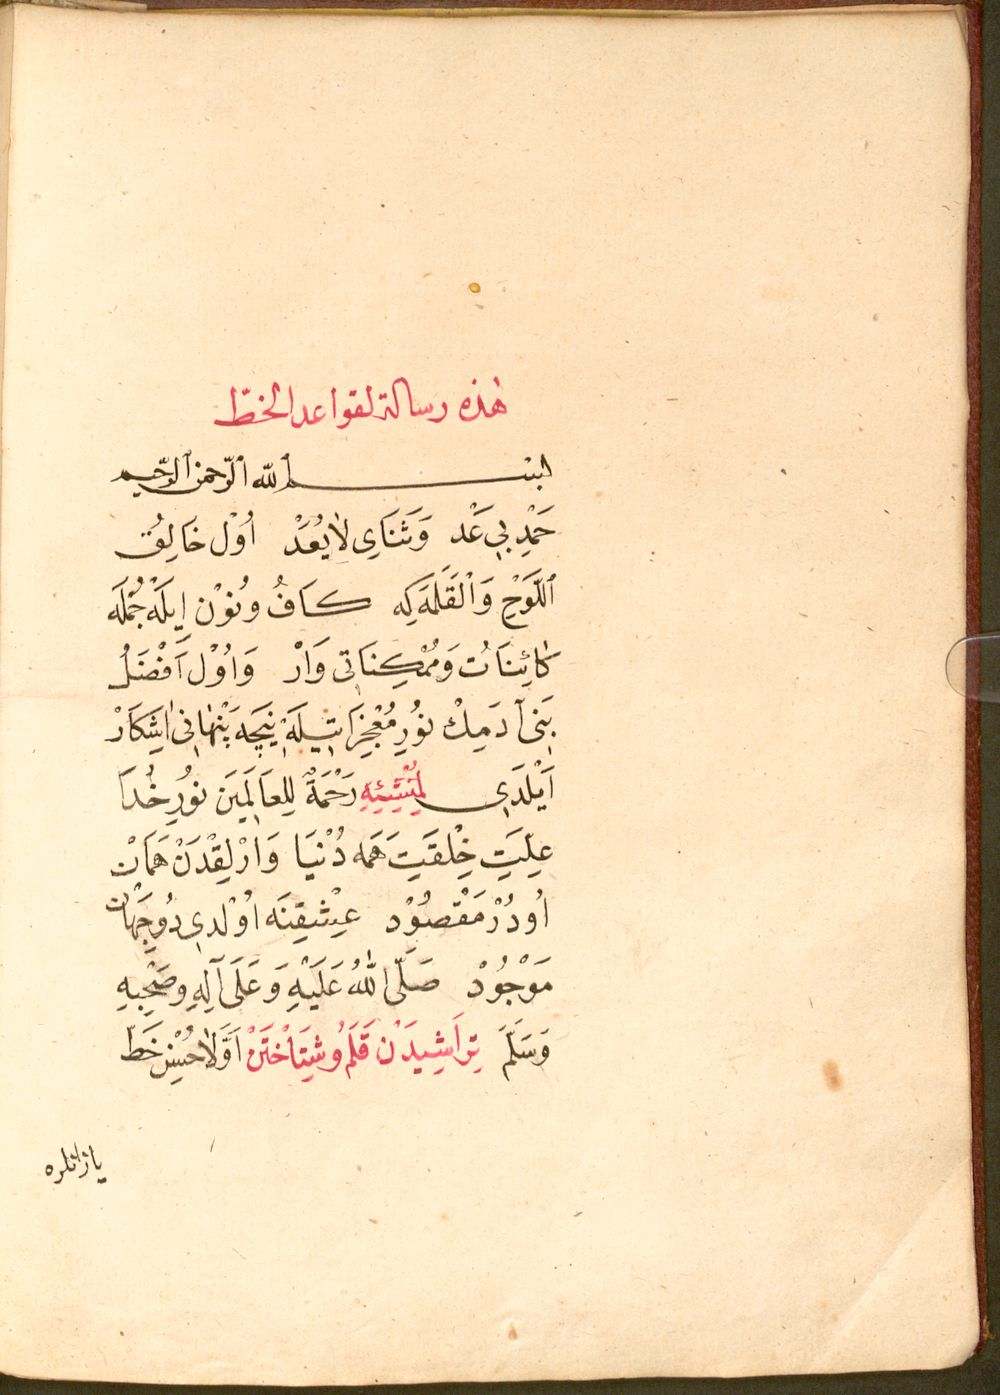 هٰذه رسالة لقواعد الخطّ
بسم ٱللّه ٱلرّحمن ٱلرّحيم
حَمْدِ بِي عَدْ وَثَنَاىِ لَا يُعَدْ اُوْل خَالِقُ
ٱللَّوْحِ وَالْقَلَمَه كِه كَافُ ونُوْن اِيلَه جُمْلَه
كَائِنَاتُ وَمُمْكِنَاتِى وَارْ وَاُوْل اَفْضَلُ
بَنِى آدَمِكْ نُورِ مُعْجِزَاتِيلَه نِيچَه پَنْهَانِى اٰشِكَارْ
اَيْلَدِى لِمُنْشِئِهِ رَحْمَةً لِلعَالَمِيَن نُورِ خُدَا
عِلَّتِ خِلْقَتِ هَمَه دُنْيَا وَارْلِقْدَنْ هَمَانْ
اُودُرْ مَقْصُوْد عِشْقِنَه اُوْلدِى دُو جِهَان
مَوْجُوْدْ صَلَّى اللّٰهُ عَلَيْهِ وَعَلَى آلِهِ وصَحْبِهِ
وَسَلَّمَ تِرَاشِيدَنْ قَلَمُ وشِنَاخْتَنْ اَوَّلَا حُسْنِ خَطّ
يازانلره